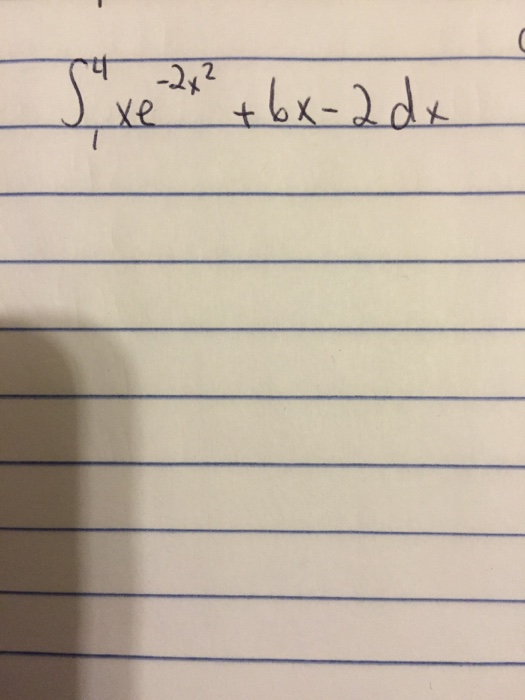 ∫₁⁴ xe^(-2x²) + 6x - 2 dx